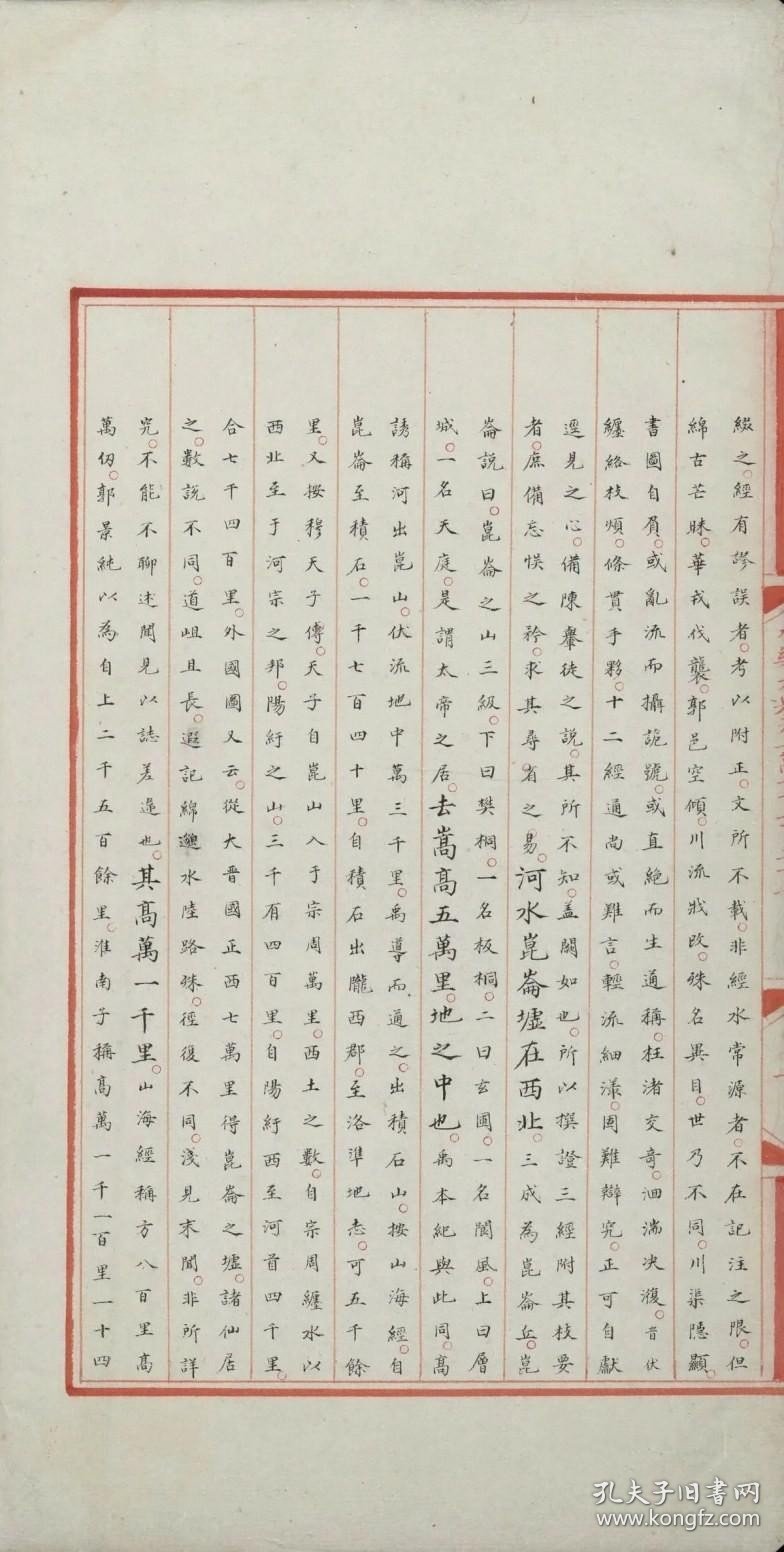 綴之。經有謬誤者。考以附正。文所不載。非經水常源者。不在記注之限。但
綿古芒昧。華戎代襲。郭邑空傾。川流戕改。殊名異目。世乃不同。川渠隱顯。
書圖自負。或亂流而攝詭號。或直絶而生通稱。枉渚交奇。洄湍决澓。
纏絡枝煩。條貫手夥。十二經通尚或難言。輕流細漾。固難辯究。正可自獻
逕見之心。備陳輿徒之說。其所不知。蓋闕如也。所以撰證三經附其枝要
者。庶備忘悮之矜。求其尋省之易。河水崑崙墟在西北。三成為崑崙丘。崑
崙說曰。崑崙之山三級。下曰樊桐。一名板桐。二曰玄圃。一名閬風。上曰層
城。一名天庭。是謂太帝之居。去嵩髙五萬里。地之中也。禹本紀與此同。髙
誘稱河出崑山。伏流地中萬三千里。禹導而通之。出積石山。按山海經。自
崑崙至積石。一千七百四十里。自積石出隴西郡。至洛準地志。可五千餘
里。又按穆天子傳。天子自崑山入于宗周萬里。西土之數。自宗周纏水以
西北至于河宗之邦。陽紆之山。三千有四百里。自陽紆西至河首四千里。
合七千四百里。外國圖又云。從大晋國正西七萬里得崑崙之墟。諸仙居
之。數說不同。道岨且長。遐記綿邈水陸路殊。徑復不同。淺見末聞。非所詳
究。不能不聊述聞見以誌差違也。其髙萬一千里。山海經稱方八百里髙
萬仞。郭景純以為自上二千五百餘里。淮南子稱髙萬一千一百里一十四
孔夫子旧书网
www.kongfz.com